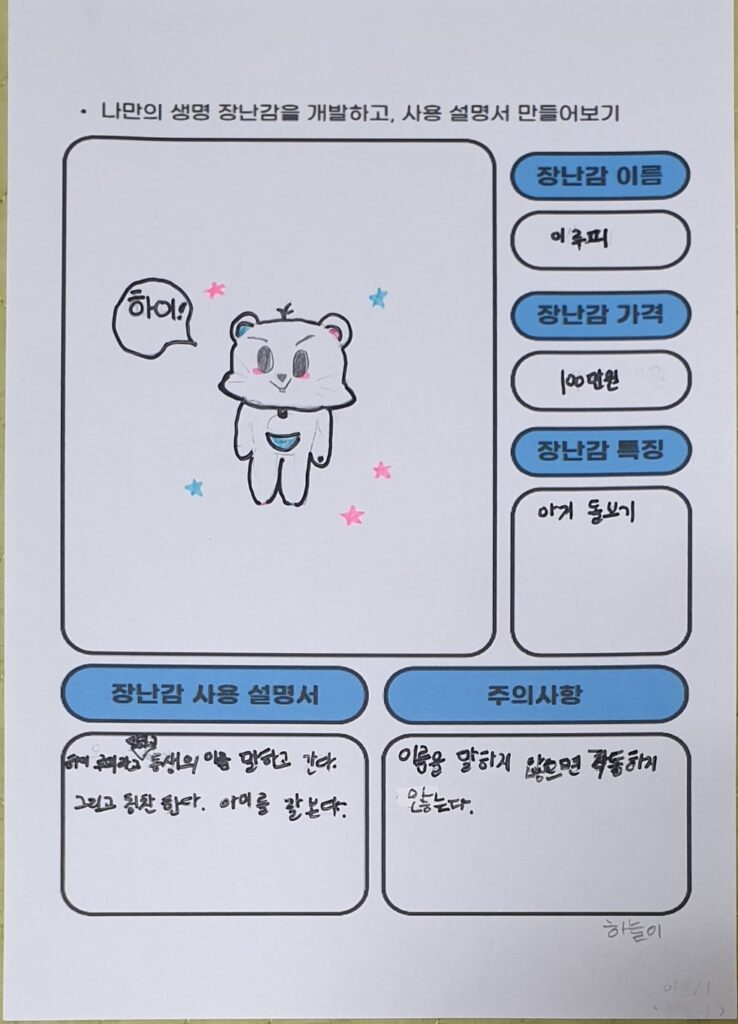 • 나만의 생명 장난감을 개발하고, 사용 설명서 만들어보기
하이!
장난감 이름
이루피
장난감 가격
100만원
장난감 특징
아기 돌보기
장난감 사용 설명서
하이 루피라고 동생의 이름 말하고 간다.
그리고 칭찬 한다. 아이를 잘 본다.
주의사항
이름을 말하지 않으면 작동하지
않는다.
하늘이